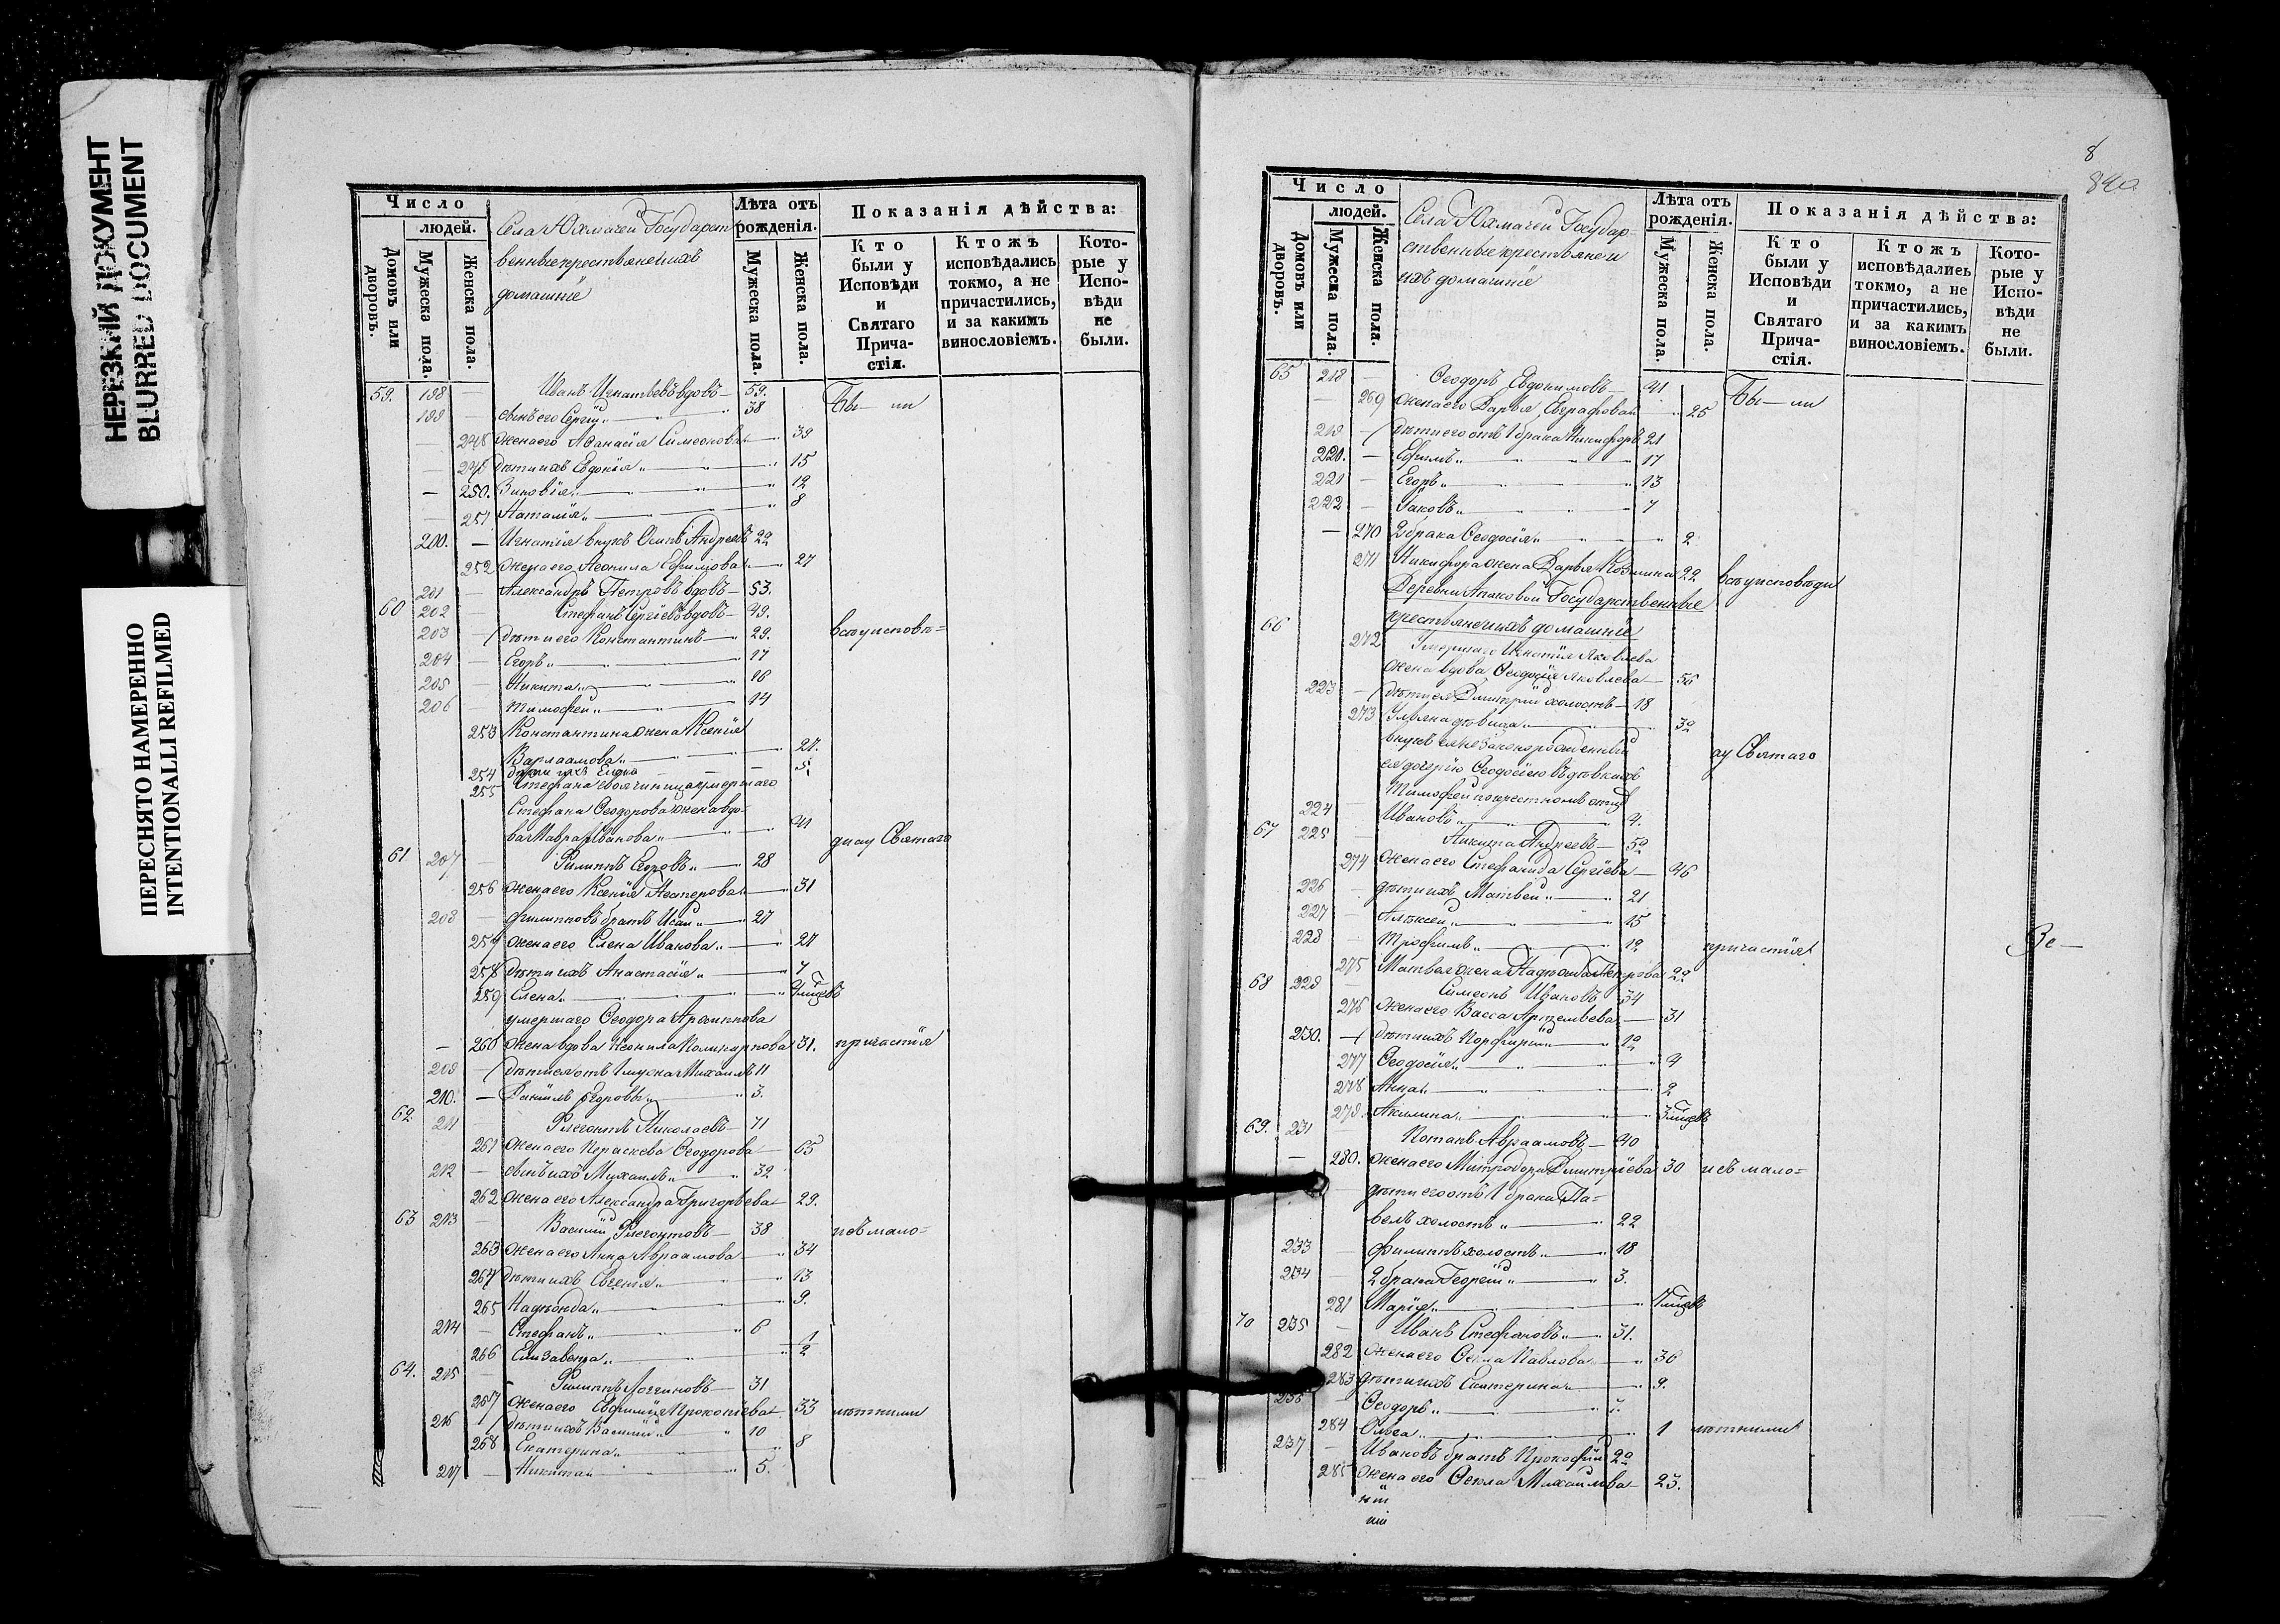 НЕРЕЗКИЙ ДОКУМЕНТ
BLURRED DOCUMENT
ПЕРЕСНЯТО НАМЕРЕННО
INTENTIONALLI REFILMED
Число
людей.
Домовъ или дворовъ.
Мужеска пола.
Женска пола.
Села Юхмачей Государст
венные крестьяне и ихъ
домашніе
Лѣта отъ рожденія.
Мужеска пола.
Женска пола.
Показанія дѣйства:
Кто были у Исповѣди и Святаго Прича-стія.
Ктожъ исповѣдались токмо, а не причастились, и за какимъ винословіемъ.
Кото-рые у Испо-вѣди не были.
59. 198 — Иванъ Игнатьевъ вдовъ — 59. Бы — ли
199 — сынъ его Сергій 38
— 248 жена его Афанасія Симеонова 39
— 249 дѣти ихъ Евдокія 15
— 250. Зиновія 12
— 251 Наталія 8
200. — Игнатія внукъ Осипъ Андреевъ 22
252 жена его Неонила Ефимова 27
201 — Александръ Петровъ вдовъ — 53.
60 202 — Стефанъ Сергіевъ вдовъ — 49.
203 — дѣти его Константинъ 29. всѣ у исповѣ=
204 — Егоръ 17
205 — Никита 16
206 — Тимофей 14
253 Константина жена Ксенія
Варлаамова 27.
254 дѣти ихъ 5.
255 Стефана своячиница умершаго
Стефана Ѳеодорова жена вдо-
ва Мавра Иванова 41 ди и у Святаго
61 207 — Филиппъ Егоровъ 28
256 жена его Ксенія Нестерова 31
208 — Филипповъ братъ Исаи 27
257 жена его Елена Иванова 27
258 дѣти ихъ Анастасія 7
259 Елена
умершаго Ѳеодора Архиппова
— 260 жена вдова Неонила Поликарпова 31. причастія
209 — дѣти ея отъ 1 мужа Михаилъ 11
210. — Даніилъ Егоровы 3.
62. 211 — Флегонтъ Николаевъ — 71
261 жена его Параскева Ѳеодорова 65
212 — сынъ ихъ Михаилъ 32
262 жена его Александра Григорьева 29.
63 213 — Василій Флегонтовъ — 38 и съ мало=
263 жена его Анна Авраамова 34
264 дѣти ихъ Евгенія 13
265 Надежда 9.
214 — Стефанъ 6
266 Елизавета 1/2
64. 215 — Филиппъ Логгиновъ — 31
267 жена его Евфимія Прокопіева 33 лѣтними
216 дѣти ихъ Василій 10
268 Екатерина 8
217 — Никита 5.
8
840
Число
людей.
Домовъ или дворовъ.
Мужеска пола.
Женска пола.
Села Юхмачей Государ-
ственные крестьяне и
ихъ домашніе
Лѣта отъ рожденія.
Мужеска пола.
Женска пола.
Показанія дѣйства:
Кто были у Исповѣди и Святаго Прича-стія.
Ктожъ исповѣдались токмо, а не причастились, и за какимъ винословіемъ.
Кото-рые у Испо-вѣди не были.
65 218 — Ѳеодоръ Евдокимовъ — 41 Бы — ли
— 269 жена его Дарья Евграфова 25
219 — дѣти его отъ 1 брака Никифоръ 21
220. — Ефимъ 17
221 — Егоръ 13
222 — Іаковъ 7
— 270 2 брака Ѳеодосія 2
271 Никифора жена Дарья Козмина 22 всѣ у исповѣди
Деревни Апаковой Государственные
крестьяне и ихъ домашніе
66 272 Умершаго Игнатія Яковлева
жена вдова Ѳеодосія Яковлева — 56
223 — дѣти ея Дмитрій холостъ — 18
273 Ульяна дѣвица 32
внукъ ея незаконорожденный
ея дочерію Ѳеодосіею въ дѣвкахъ и у Святаго
224 Тимофей по крестномъ отцѣ
Ивановъ 4.
67 225 — Никита Андреевъ — 52
274 жена его Стефанида Сергіева — 46
226 — дѣти ихъ Матвей 21
227 — Алексѣй 15
228 — Трофимъ 12 причастія Зе —
275 Матвея жена Надежда Петрова 22
68 229 — Симеонъ Ивановъ 34
276 жена его Васса Артемьева 31
230. — дѣти ихъ Порфирій 12
277 Ѳеодосія 4
278 Анна 2
279. Акилина
69. 231 Потапъ Авраамовъ — 40
— 280. жена его Митродора Дмитріева 30 и съ мало=
дѣти его отъ 1 брака Па=
велъ холостъ 22
233 — Филиппъ холостъ 18
234 — 2 брака Георгій 3.
281 Марія
70 235 — Иванъ Стефановъ 31.
282 жена его Ѳекла Павлова 36
283 дѣти ихъ Екатерина 9.
236 — Ѳеодоръ
284 Ольга 1 лѣтними
237 — Ивановъ братъ Прокофій 22
285 жена его Ѳекла Михайлова 23.